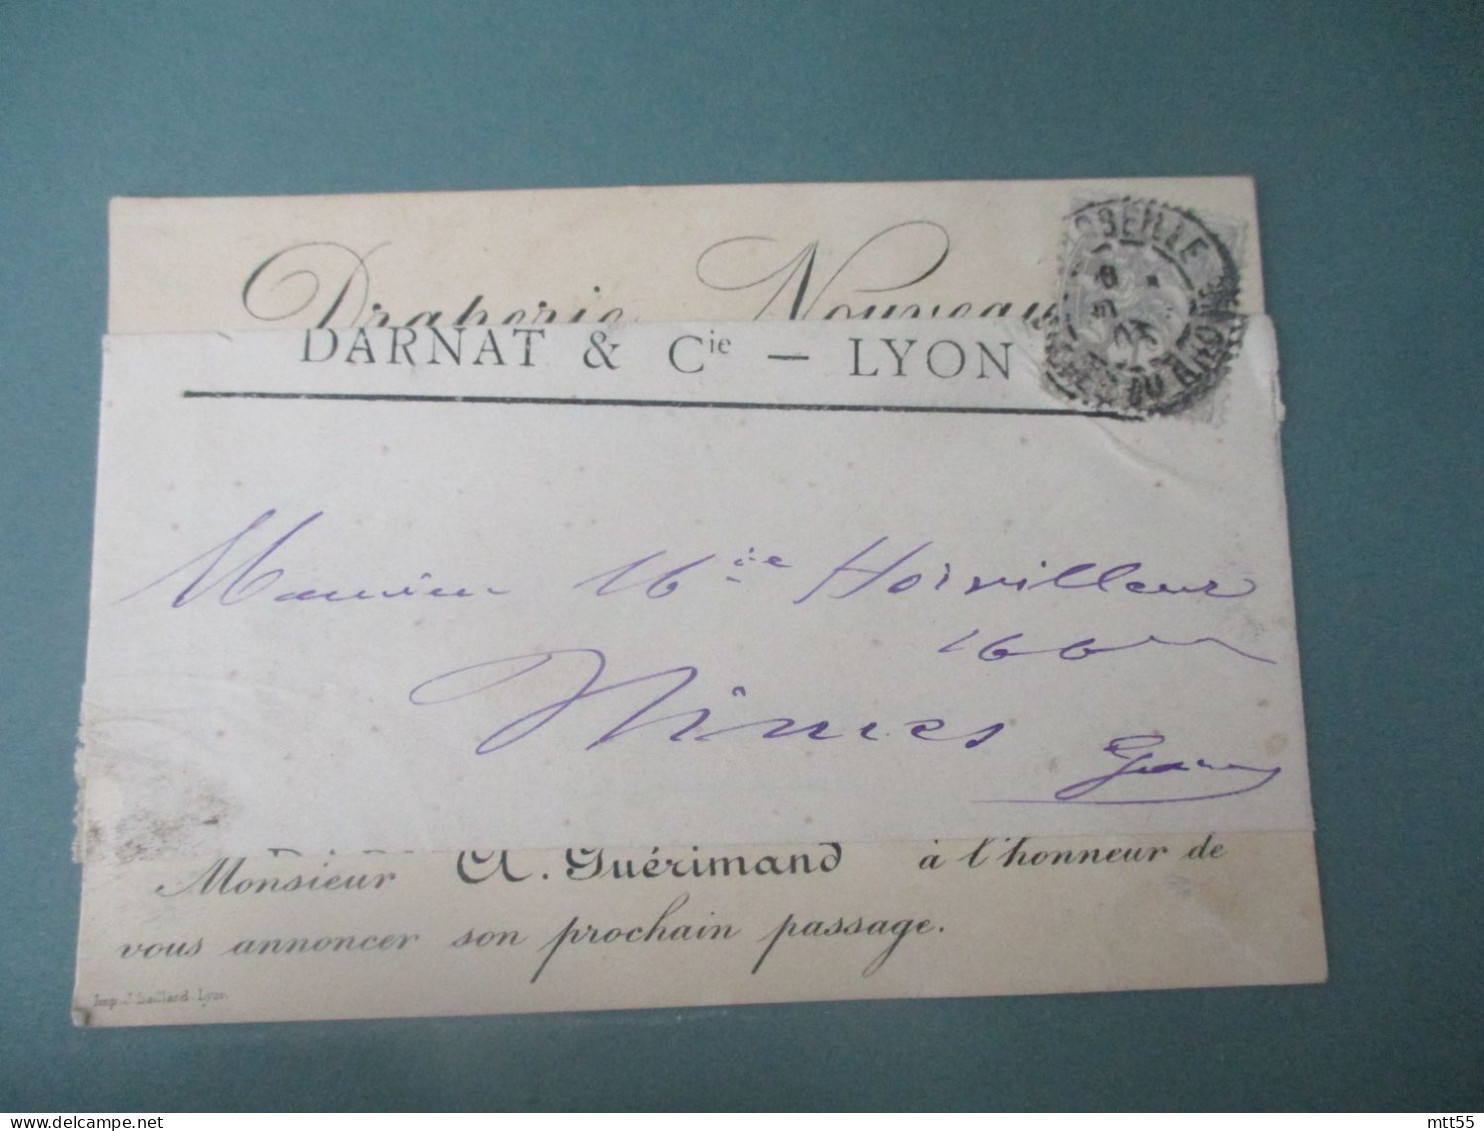 Draperie Nouveau
DARNAT & Cie — LYON
OSEILLE
DU RHONE
Monsieur Horvilleur
Nimes
Gard
Monsieur A. Guérimand à l'honneur de
vous annoncer son prochain passage.
Imp. J. Gaillard. Lyon.
delcampe.net
mtt55